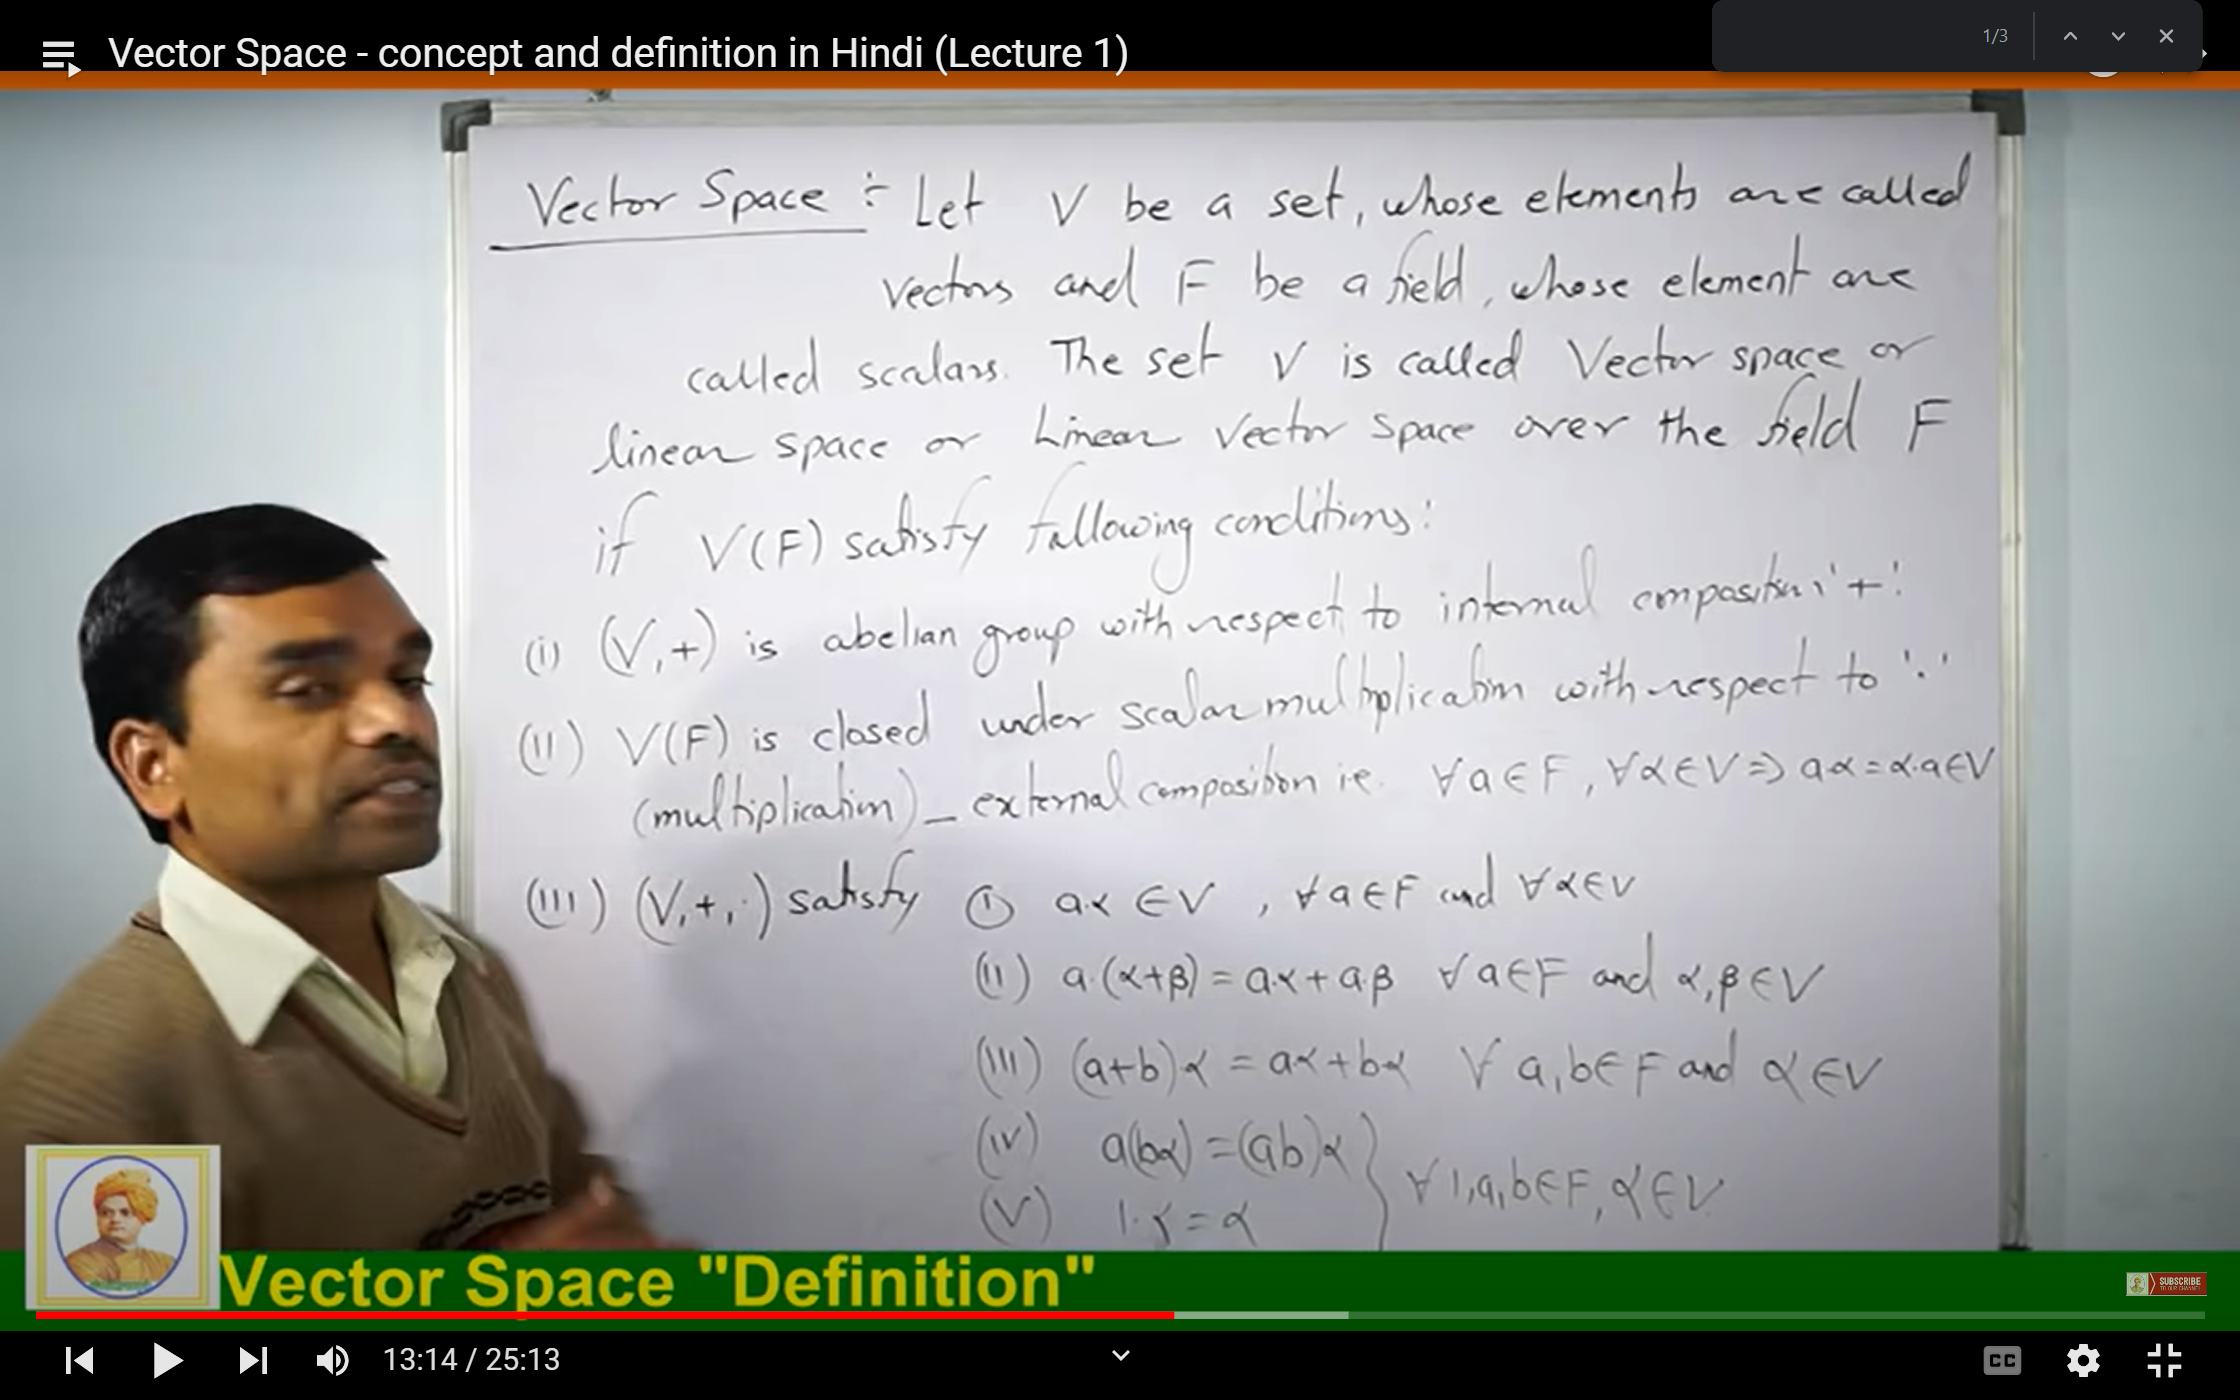 Vector Space - concept and definition in Hindi (Lecture 1)
1/3
Vector Space :- Let V be a set, whose elements are called
vectors and F be a field, whose element are
called scalars. The set V is called Vector space or
linear space or Linear Vector Space over the field F
if V(F) satisfy following conditions:
(i) (V,+) is abelian group with respect to internal composition '+'.
(II) V(F) is closed under scalar multiplication with respect to '.'
(multiplication) _ external composition i.e. ∀a∈F, ∀α∈V ⇒ aα=α.a∈V
(III) (V,+,.) satisfy (i) aα ∈V , ∀a∈F and ∀α∈V
(II) a.(α+β) = a.α + a.β ∀a∈F and α,β∈V
(III) (a+b)α = aα+bα ∀ a,b∈F and α∈V
(IV) a(bα) = (ab)α } ∀ 1,a,b∈F, α∈V
(V) 1.α = α
Vector Space "Definition"
SUBSCRIBE
TO OUR CHANNEL
13:14 / 25:13
CC